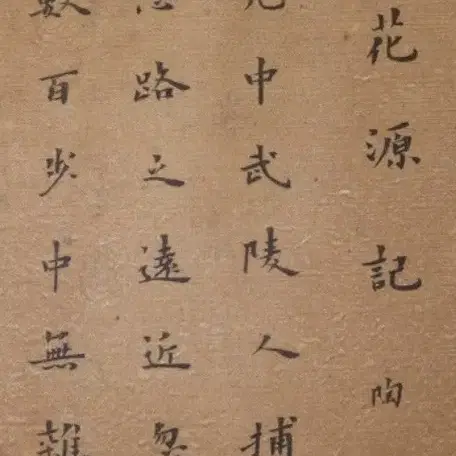 花源記 陶
元中武陵人捕
忘路之遠近忽
數百步中無雜